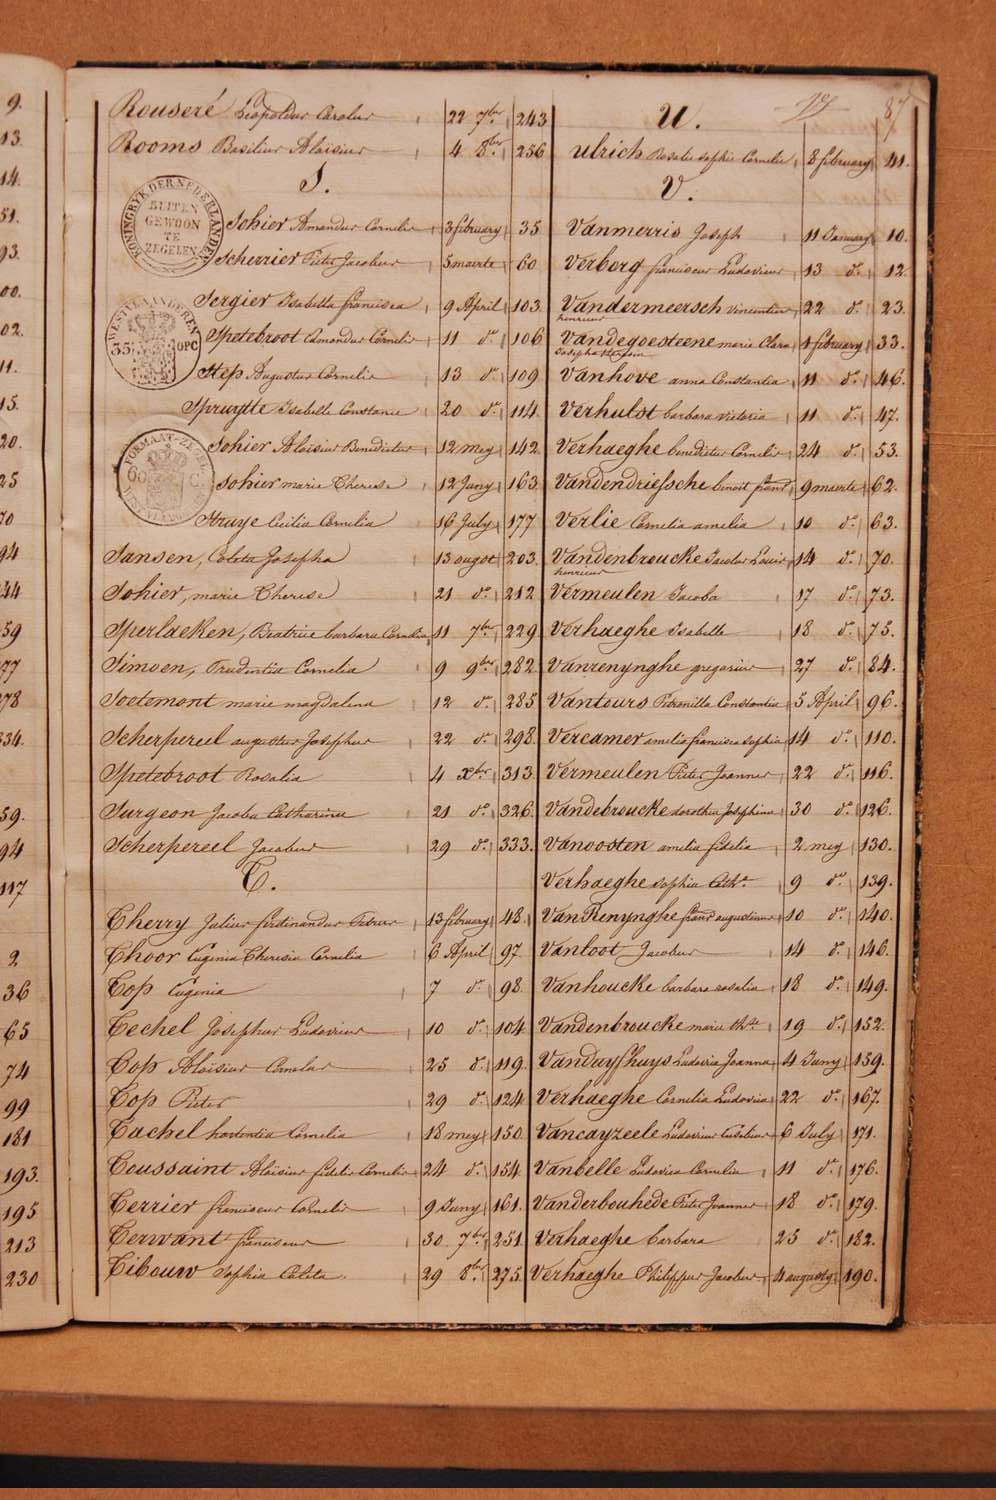 77 87
9.
13.
14.
51.
93.
00.
02.
11.
15.
20.
25
70
94
244
259
77
278
334.
59.
94
117
2
36
65
74
99
181
193.
195
213
230
Rouseré Leopoldus Carolus 22 7bre 243
Rooms Basilius Aloïsius 4 8bre 256
S.
KONINGRYK DER NEDERLANDEN
BUITEN
GEWOON
TE
ZEGELEN
Sohier Amandus Cornelis 3 february 35
Scherrier Pieter Jacobus 5 maerte 60
Sergier Isabella francisca 9 April 103
WESTVLAANDEREN
35 OPC
Spetebroot Edmondus Cornelis 11 do. 106
Step Augustus Cornelis 13 do. 109
Spruytte Isabelle Constance 20 do. 114.
FORMAAT-ZEGEL
60 C.
Sohier Aloïsius Benedictus 12 mey 142
Sohier marie Therese 12 Juny 163.
Struye Cicilia Cornelia 16 July 177
Sansen, Coleta Josepha 13 ougst 203.
Sohier, marie Therese 21 do. 212
Sperlaeken, Beatrice barbara Cornelia 11 7bre 229
Simoen, Prudentia Cornelia 9 9bre 282
Soetemont marie magdalena 12 do. 285
Scherpereel augustus Josephus 22 do. 298.
Spetebroot Rosalia 4 xbre 313.
Surgeon Jacoba Catharina 21 do. 326.
Scherpereel Jacobus 29 do. 333.
T.
Therry Julius ferdinandus 13 february 48.
Thoor Eugenia Theresia Cornelia 6 April 97.
Top Eugenia 7 do. 98.
Techel Josephus Ludovicus 10 do. 104.
Top Aloïsius Cornelis 25 do. 119.
Top Pieter 29 do. 124.
Tachel hortentia Cornelia 18 mey 150.
Toussaint Aloïsius fidelis Cornelis 24 do. 154.
Terrier franciscus Cornelis 9 Juny 161.
Terwant franciscus 30 7bre 251.
Tibouw Sophia Coleta. 29 8bre 275.
U.
Ulrich Rosalie sophie Cornelie 8 february 41.
V.
Vanmerris Joseph 11 January 10.
Verborg franciscus Ludovicus 13 do. 12.
Vandermeersch vincentius 22 do. 23.
henricus
Vandegoesteene marie Clara 1 february 33.
Vanhove anna Constantia 11 do. 46.
Verhulst barbara victoria 11 do. 47.
Verhaeghe benedictus Cornelis 24 do. 53.
Vandendriessche benoit 9 maerte 62.
Verlie Cornelia amelia 10 do. 63.
Vandenbroucke Jacobus Louis 14 do. 70.
henricus
Vermeulen Jacoba 17 do. 73.
Verhaeghe Isabelle 18 do. 75.
Vanrenynghe gregorius 27 do. 84.
Vantours Petronilla Constantia 5 April 96.
Vercamer amelia francisca sophia 14 do. 110.
Vermeulen Pieter Joannes 22 do. 116.
Vandebroucke dorothea Josephina 30 do. 126.
Vanoosten amelia fidelia 2 mey 130.
Verhaeghe sophia Cath. 9 do. 139.
VanRenynghe augustinus 10 do. 140.
Vanloot Jacobus 14 do. 146.
Vanhoucke barbara rosalia 18 do. 149.
Vandenbroucke marie 19 do. 152.
Vandaysshuys Ludovica Joanna 4 Juny 159.
Verhaeghe Cornelia Ludovica 22 do. 167.
Vancayzeele Ludovicus 6 July 171.
Vanbelle Ludovica Cornelia 11 do. 176.
Vanderbouhede Pieter Joannes 18 do. 179.
Verhaeghe barbara 25 do. 182.
Verhaeghe Philippus Jacobus 4 augusty 190.